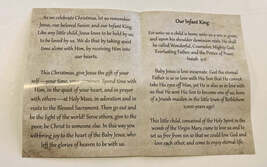 As we celebrate Christmas, let us remember
our beloved Savior, and our infant King.
Like any little child, Jesus loves to be held and
to be loved by us. We do that by taking quiet
time alone with Him, by receiving Him into
our hearts.
This Christmas, give Jesus the gift of your
self—your time, Spend time with
Him, in the quiet of your heart, and in prayer
with others—at Holy Mass, in adoration and in
visits to the Blessed Sacrament. Then go out and
be the light of the world! Serve others, give to the
poor, be Christ to someone else. In this way you
will bring joy to the heart of the Baby Jesus, who
left the glories of heaven to be with us.
Our Infant King
For unto us a child is born, unto us a son is given;
and upon his shoulder dominion rests. He shall
be called Wonderful, Counselor, Mighty God,
Everlasting Father and the Prince of Peace.
Isaiah 9:6
Baby Jesus is love incarnate. God the eternal
Father is so in love with His Son that He cannot
take His eyes off Him, yet He is also so in love with
us that He sent His Son to become one of us, born
of a Jewish maiden in the little town of Bethlehem
2,000 years ago!
This little child, conceived of the Holy Spirit in the
womb of the Virgin Mary, came to love us and to
set us free from sin so that we could love God and
love each other, and come to enjoy eternal life.